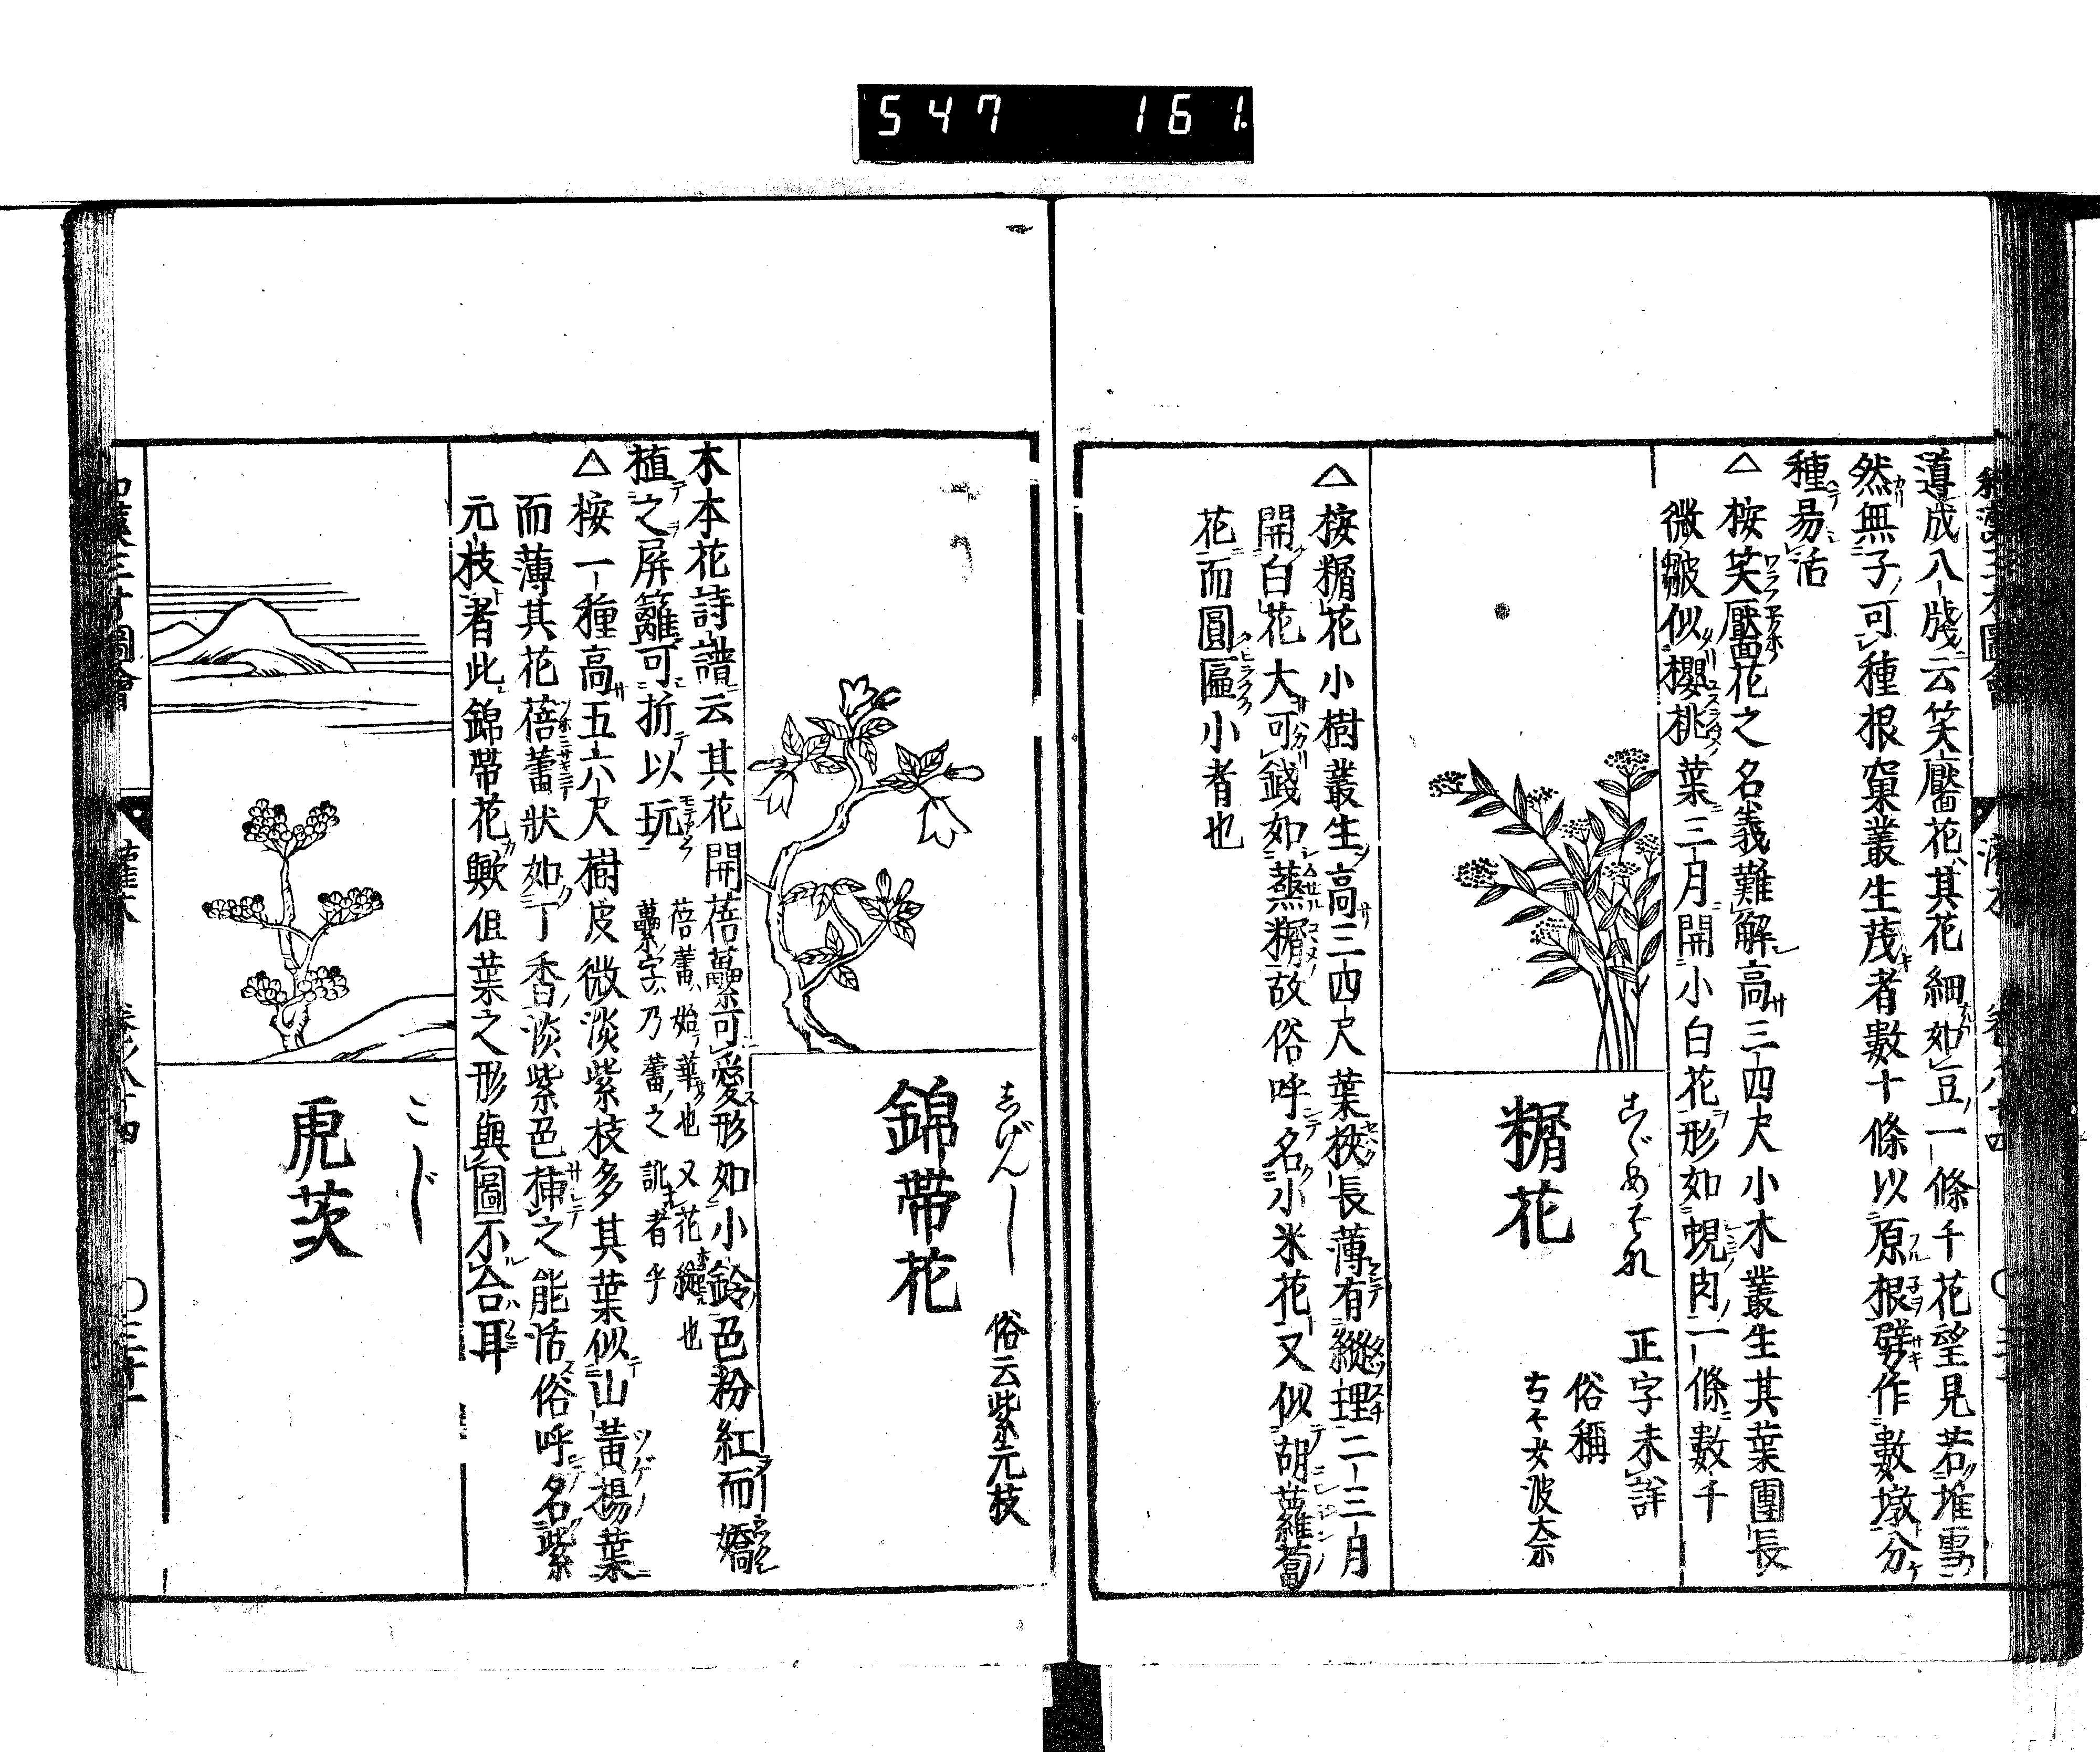 547 161.
道成八牋云笑靨花其花細如豆一條千花望見若堆雪
然無子可種根窠叢生茂者數十條以原根劈作數墩分
種易活
△按笑靨花之名義難解高三四尺小木叢生其葉團長
微皺似櫻桃葉三月開小白花形如蜆肉一條數千
糏花
こゞめばな 正字未詳
俗稱
古々女波奈
△按糏花小樹叢生高三四尺葉狹長薄有縱理二三月
開白花大可錢如蒸糏故俗呼名小米花又似胡蘿蔔
花而圓匾小者也
錦帶花
しげんし 俗云紫元枝
木本花詩譜云其花開蓓蘽可愛形如小鈴色粉紅而嬌
植之屏籬可折以玩 蓓蕾始華也又花綻也
蘽字乃蕾之訛者乎
△按一種高五六尺樹皮微淡紫枝多其葉似山黃楊葉
而薄其花蓓蕾狀如丁香淡紫色揷之能活俗呼名紫
元枝者此錦帶花歟但葉之形與圖不合耳
虎茨
こじ